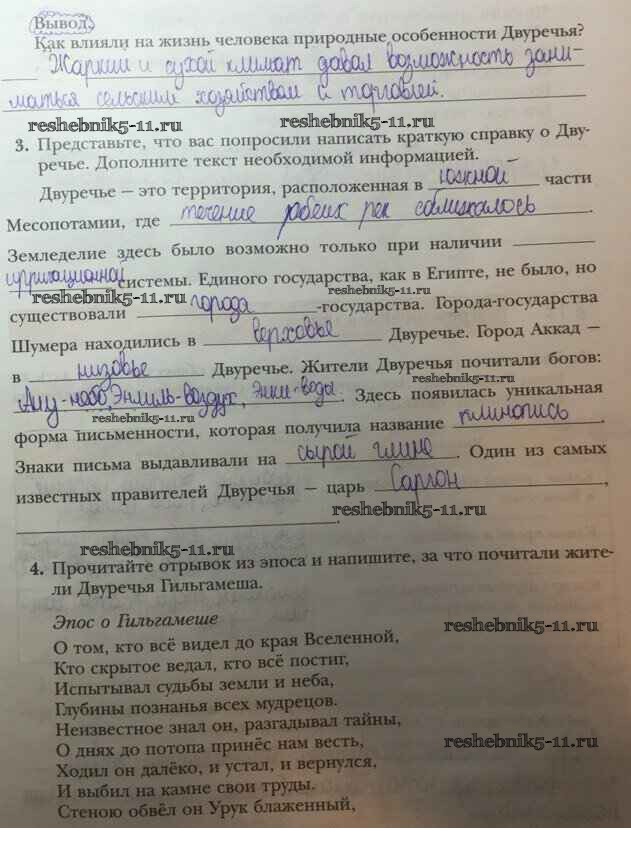 Вывод.
Как влияли на жизнь человека природные особенности Двуречья?
Жаркий и сухой климат давал возможность зани-
маться сельским хозяйством и торговлей.
reshebnik5-11.ru reshebnik5-11.ru
3. Представьте, что вас попросили написать краткую справку о Дву-
речье. Дополните текст необходимой информацией.
Двуречье — это территория, расположенная в южной части
Месопотамии, где течение рек сближалось.
Земледелие здесь было возможно только при наличии
ирригационной системы. Единого государства, как в Египте, не было, но
reshebnik5-11.ru reshebnik5-11.ru
существовали города-государства. Города-государства
Шумера находились в верховье Двуречье. Город Аккад —
в низовье Двуречье. Жители Двуречья почитали богов:
reshebnik5-11.ru
Ану-небо Энлиль-воздух, Энки-воды. Здесь появилась уникальная
reshebnik5-11.ru
форма письменности, которая получила название клинопись.
Знаки письма выдавливали на сырой глине. Один из самых
известных правителей Двуречья — царь Саргон,
reshebnik5-11.ru
reshebnik5-11.ru
4. Прочитайте отрывок из эпоса и напишите, за что почитали жите-
ли Двуречья Гильгамеша.
Эпос о Гильгамеше
reshebnik5-11.ru
О том, кто всё видел до края Вселенной,
Кто скрытое ведал, кто всё постиг,
Испытывал судьбы земли и неба,
Глубины познанья всех мудрецов.
Неизвестное знал он, разгадывал тайны,
О днях до потопа принёс нам весть,
reshebnik5-11.ru
Ходил он далёко, и устал, и вернулся,
И выбил на камне свои труды.
Стеною обвёл он Урук блаженный,